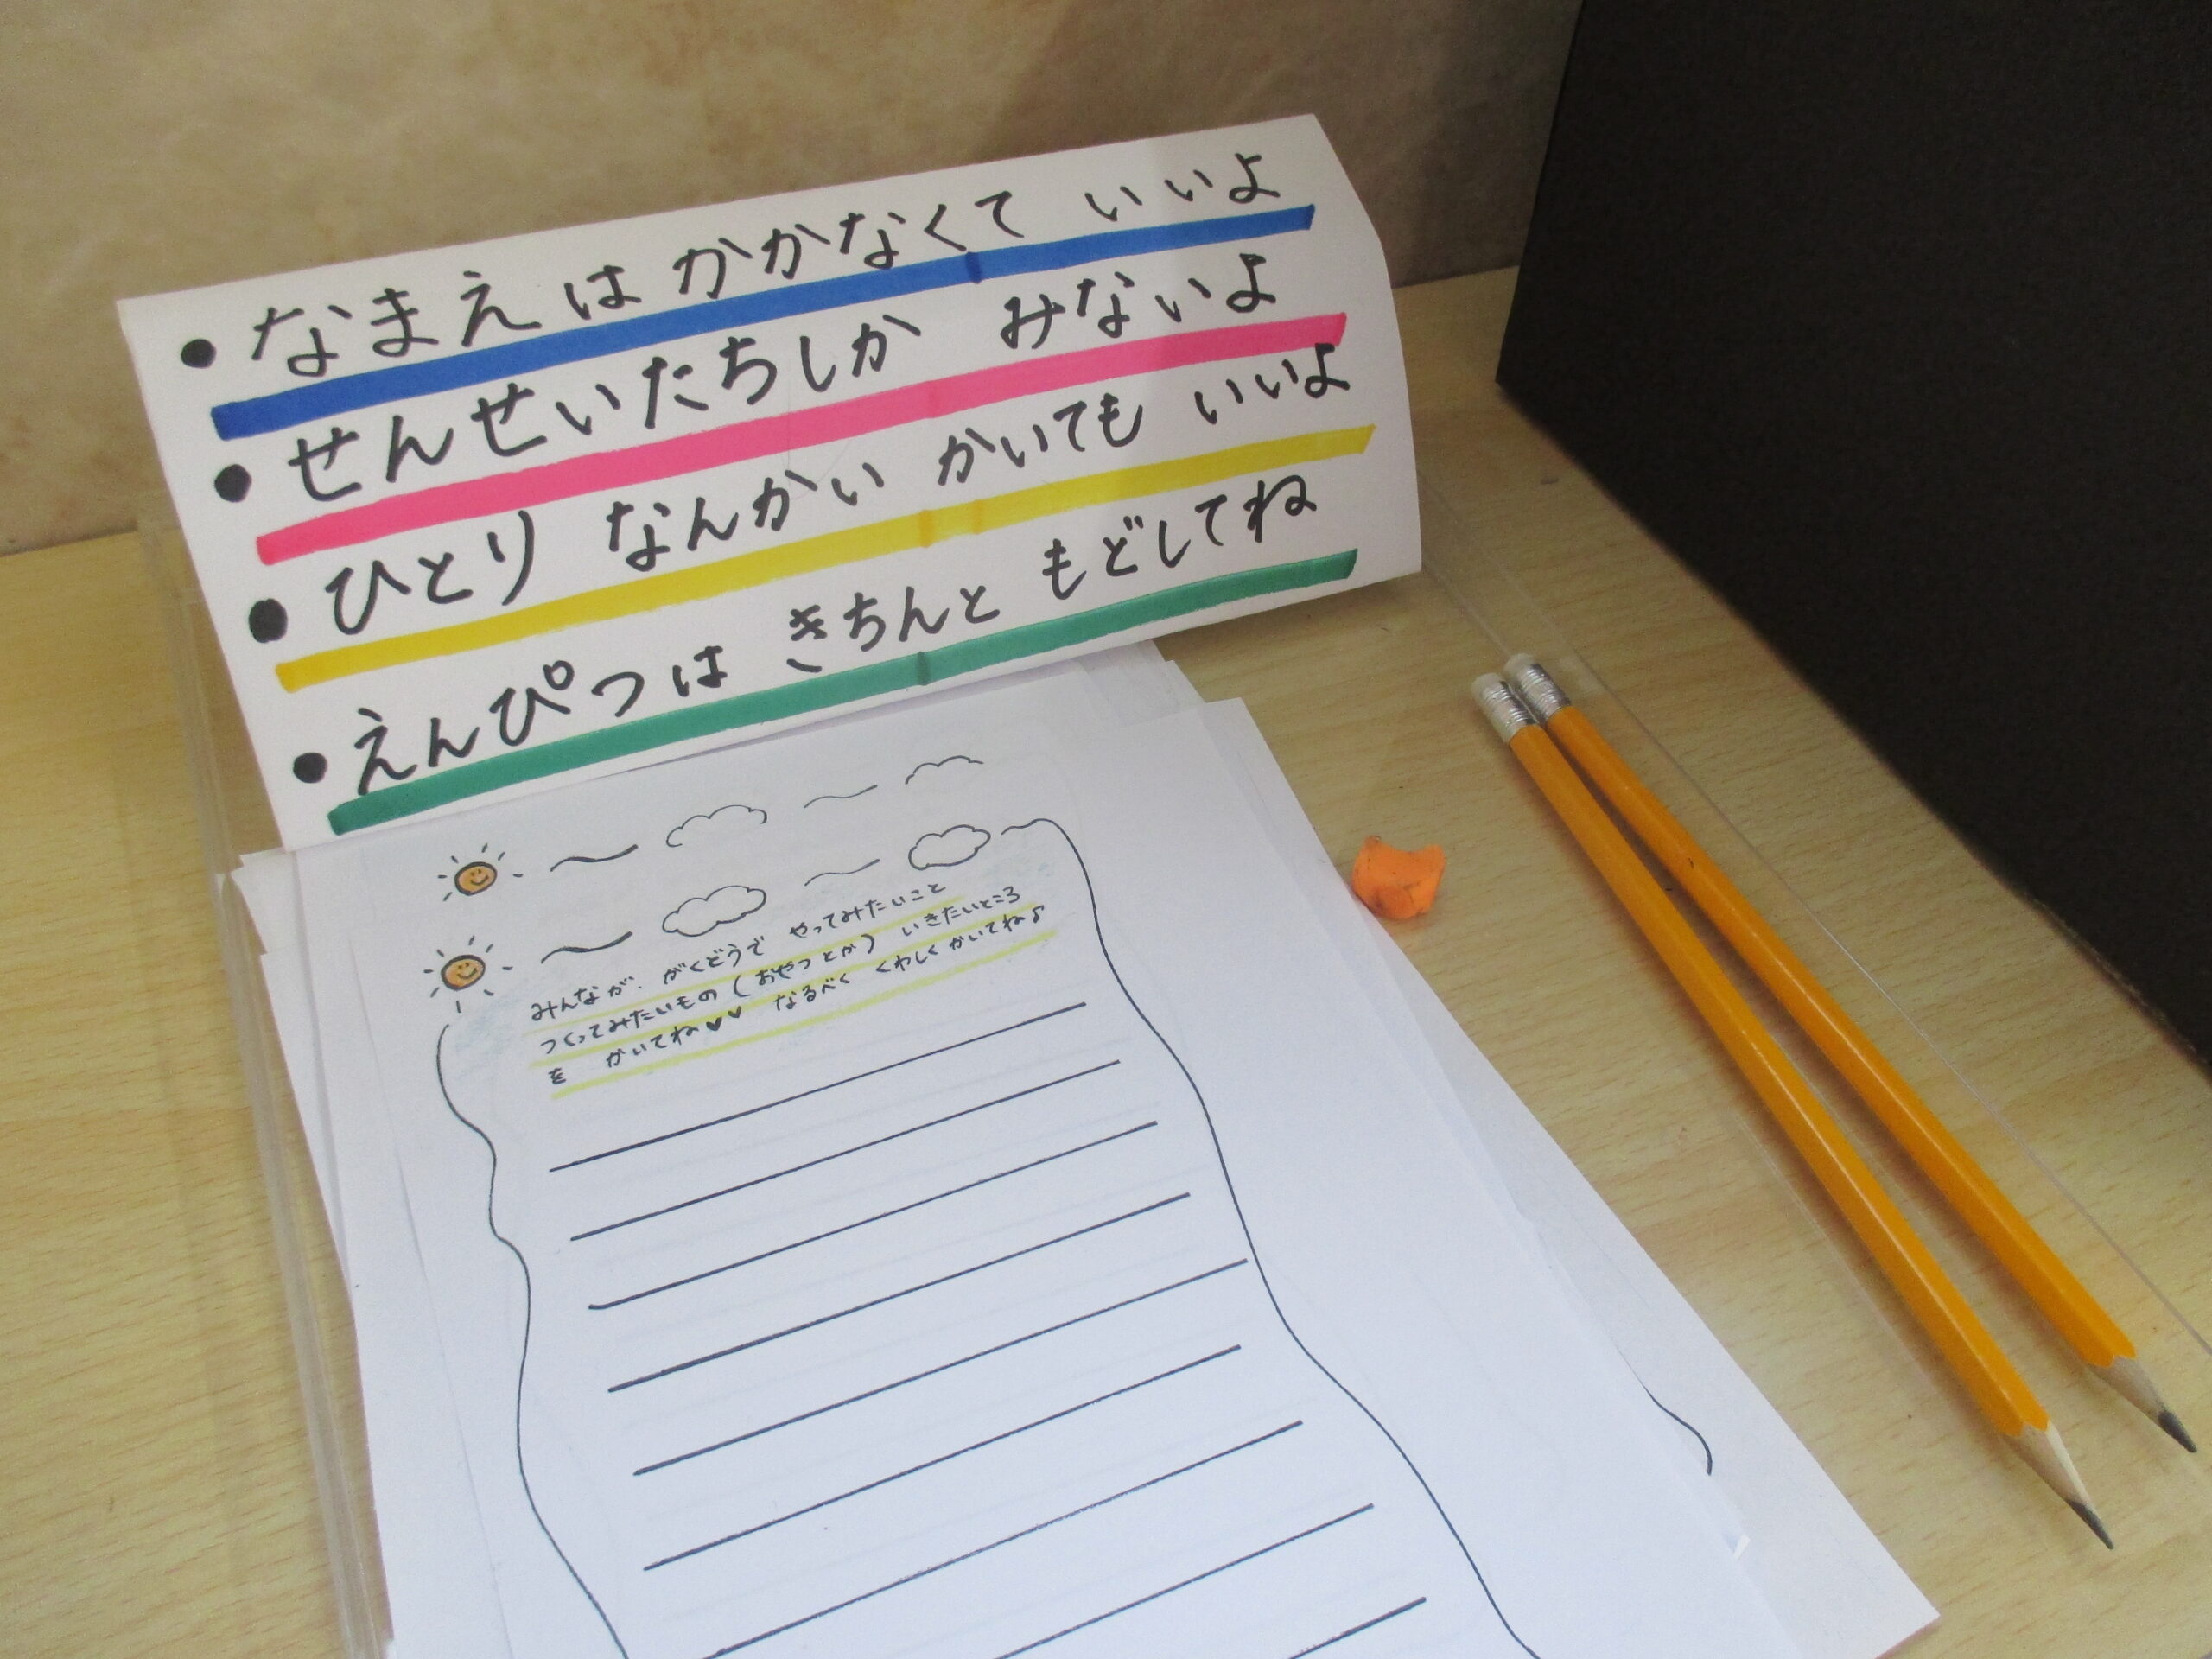 • なまえは かかなくて いいよ
• せんせいたちしか みないよ
• ひとり なんかい かいても いいよ
• えんぴつは きちんと もどしてね
みんなが、がくどうで やってみたいこと
つくってみたいもの(おやつとか) いきたいところ
を かいてね♥♥ なるべく くわしくかいてね♪